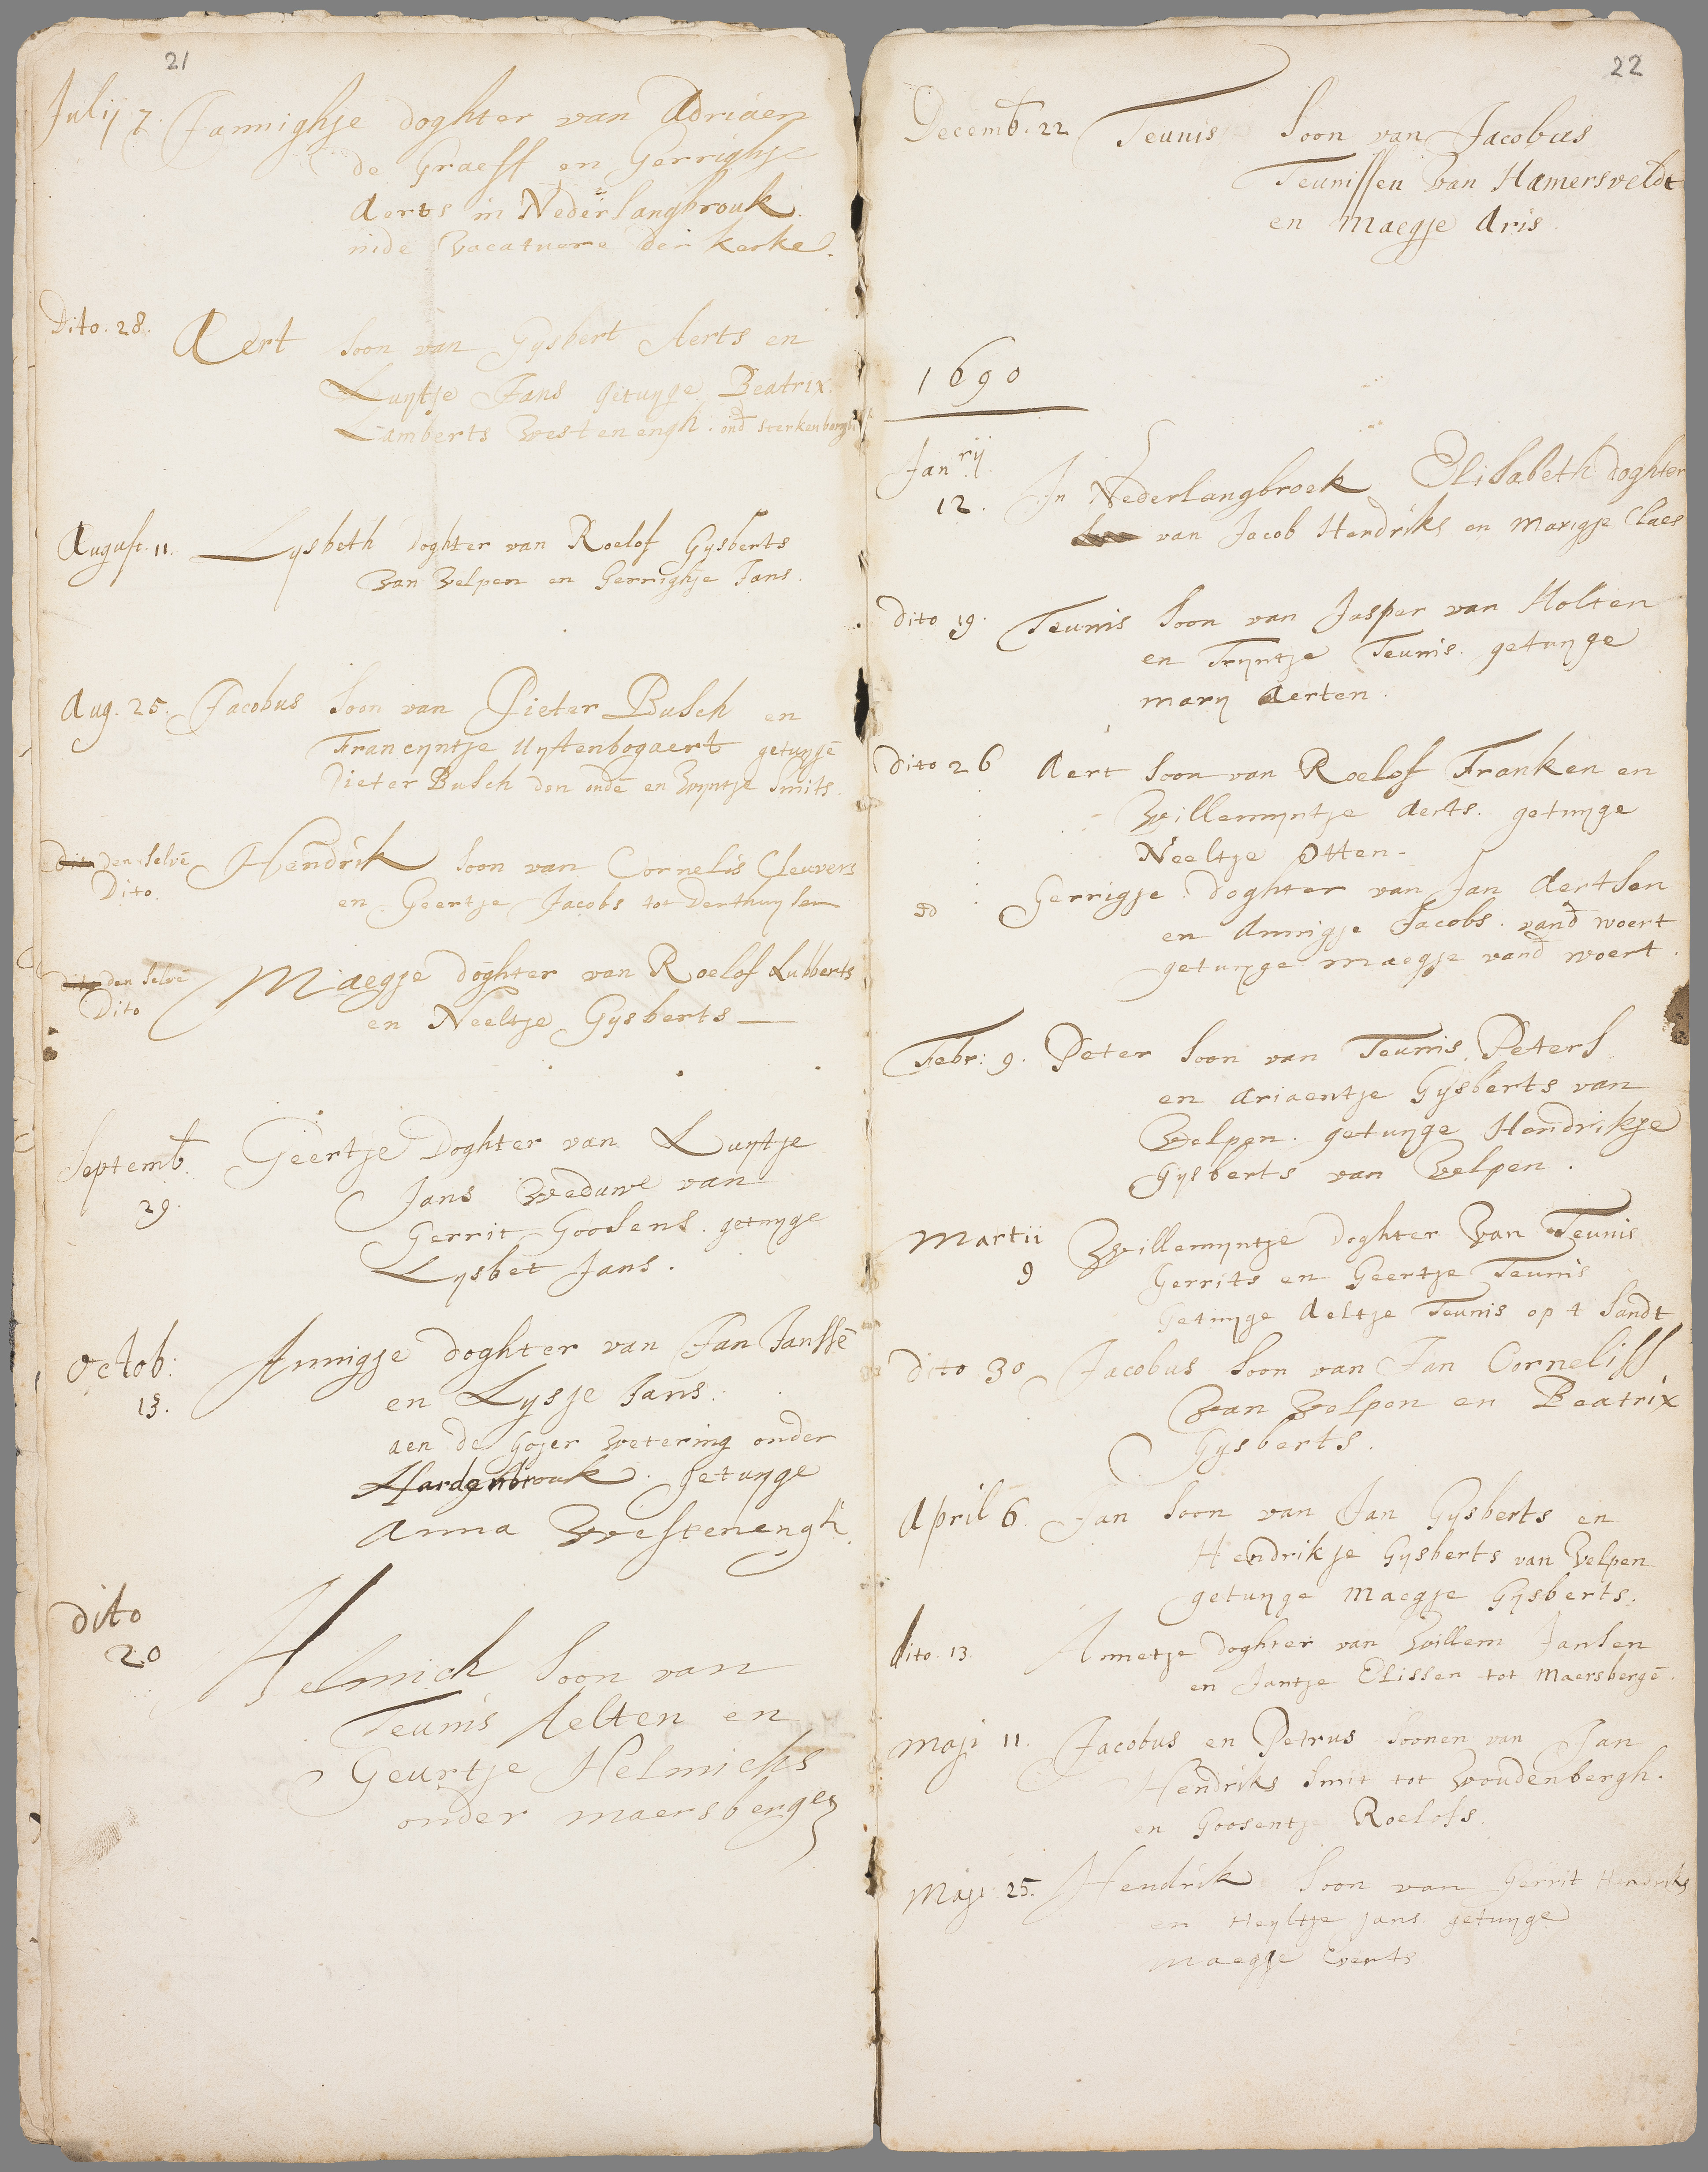 21
Julij 7. Jannighje doghter van Adriaen
de Graeff en Gerrighje
Aerts in Nederlangbrouk.
inde vacatuere der kerke.
Dito. 28. Aert soon van Gysbert Aerts en
Luytje Jans getuyge Beatrix
Lamberts Westenengh. ond sterkenborgh
August. 11. Lysbeth doghter van Roelof Gysberts
van Velpen en Gerrighje Jans.
Aug. 25. Jacobus soon van Pieter Busch en
Francyntje Uytenbogaert getuyge
Pieter Busch den oude en Wyntje Smits.
Dito den selve Hendrik soon van Cornelis Cleuvers
Dito. en Geertje Jacobs tot Derthuysen
dito den selve Maegje doghter van Roelof Lubberts
Dito en Neeltje Gysberts —
Septemb. Geertje Doghter van Luytje
29. Jans Weduwe van
Gerrit Goosens. getuyge
Lysbet Jans.
Octob: Annigje doghter van Jan Janssē
13. en Lysje Jans.
aen de Gojer wetering onder
Hardenbrouk. getuyge
Anna Westenengh.
Dito
20 Helmich soon van
Teunis Aelten en
Geurtje Helmichs
onder maersbergen
22
Decemb. 22 Teunis soon van Jacobus
Teunissen van Hamersveldt
en Maegje Aris.
1690
Janrij
12. In Nederlangbroek Elisabeth doghter
van Jacob Hendriks en Marigje Claes
Dito 19. Teunis soon van Jasper van Holten
en Tryntje Teunis. getuyge
mary Aerten.
Dito 26 Aert soon van Roelof Franken en
Willemyntje Aerts. getuyge
Neeltje Otten-
Gerrigje doghter van Jan Aertsen
en Annigje Jacobs. vand woert
getuyge maegje vand woert.
Febr: 9. Peter soon van Teunis Peters
en Ariaentje Gysberts van
Velpen. getuyge Hendrikje
Gysberts van Velpen.
Martii Willemyntje doghter van Teunis
9 Gerrits en Geertje Teunis
Getuyge Aeltje Teunis op t sandt
Dito 30 Jacobus soon van Jan Corneliss
van Velpen en Beatrix
Gysberts.
April 6. Jan soon van Jan Gysberts en
Hendrikje Gysberts van Velpen
getuyge Maegje Gysberts.
dito. 13. Annetje doghter van Willem Jansen
en Jantje Elissen tot Maersbergē.
Maji 11. Jacobus en Petrus soonen van Jan
Hendriks Smit tot Woudenbergh.
en Goosentje Roelofs.
Maji 25. Hendrik soon van Gerrit Hendriks
en Heyltje Jans getuyge
Maegje Everts